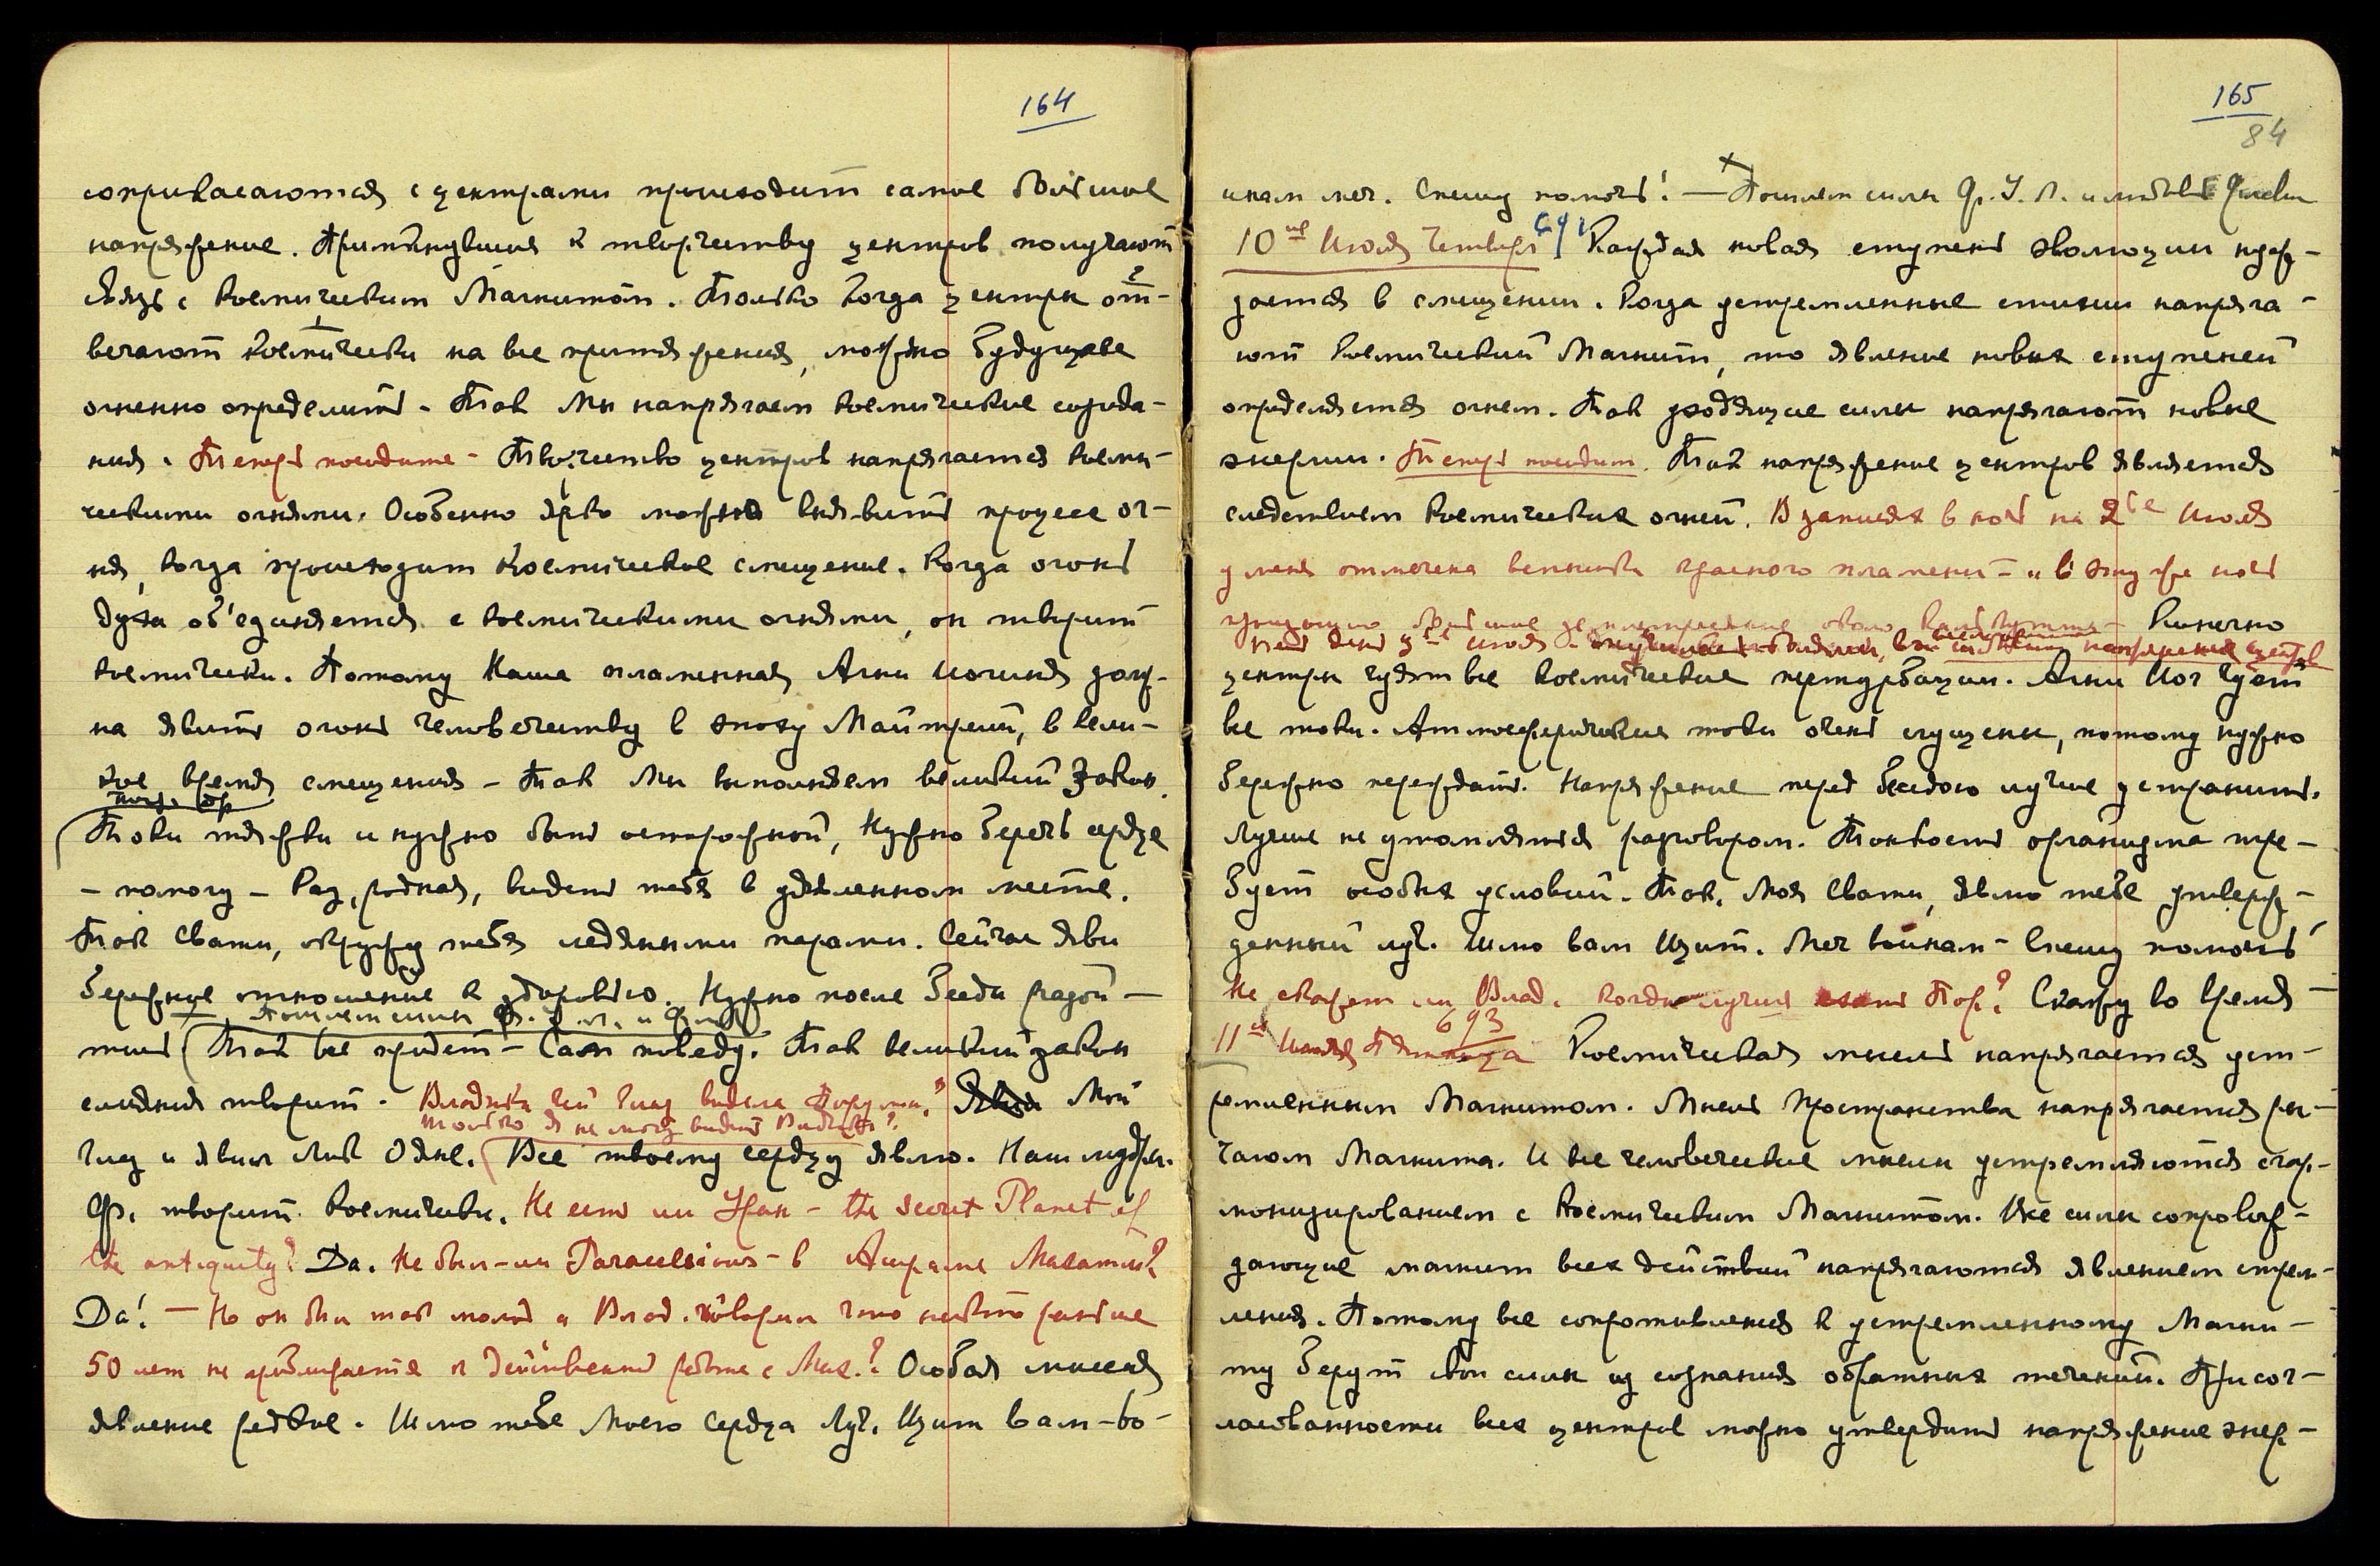 164
соприкасаются с центрами происходит самое большое
напряжение. Примкнувшие к творчеству центров получают
связь с Космическим Магнитом. Только когда центры от-
вечают космически на все притяжения, можно будущее
огненно определить – Так Мы напрягаем космические созида-
ния. Теперь посидите – Творчество центров напрягается косми-
ческими огнями. Особенно ярко можно выявить процесс ог-
ня, когда происходит Космическое смещение. Когда огонь
духа об'единяется с космическими огнями, он творит
космически. Потому Наша пламенная Агни Йогиня долж-
на явить огонь человечеству в эпоху Майтрейи, в вели-
кое время смещения – Так Мы выполняем великий Закон.
Токи тяжки и нужно быть осторожной, Нужно беречь сердце
– помогу – Рад, родная, видеть тебя в уделенном месте.
Так Свати, окружу тебя ледяными парами. Сейчас яви
бережное отношение к здоровью. Нужно после Беседы
Пошлем силы Ф. У. Л. и
Так все придет – Сам поведу. Так великий закон
слияния творит. Владыка чей глаз видела
только я не могу видеть Владыку?
глаз и явил Лик Один. Все твоему сердцу явлю. Наш
Ф. творит космически. Не есть ли Уран – the secret Planet of
the antiquity? Да. Не был-ли Paracelsius – в Ашраме Махатм?
Да! – Но он был так молод а Влад. говорил что никто раньше
50 лет не к работе с Мах.? Особая миссия
явление редкое. Шлю тебе Моего Сердца Луч. Щит вам – во-
165
84
инам меч. Спешу помочь! – Пошлем силы Ф. У. Л. и
10ое Июля Четверг 691 Каждая новая ступень эволюции нуж-
дается в смещении. Когда устремленные стихии напряга-
ют Космический Магнит, то явление новых ступеней
определяется огнем. Так уходящие силы напрягают новые
энергии. Теперь посидим. Так напряжение центров является
следствием Космических огней. В записях в ночь на 2ое Июля
у меня отмечена вспышка красного пламени – и в эту же ночь
произошло большое землетрясение около – Конечно
напряжение центров
центры чуют все космические пертурбации. Агни Йог чует
все токи. Атмосферические токи очень сгущены, потому нужно
бережно переждать. Напряжение перед Беседою лучше устранить.
Лучше не утомляться разговором. Тонкость организма тре-
бует особых условий. Так, Моя Свати, явлю тебе утверж-
денный луч. Шлю вам Щит. Меч воинам – Спешу помочь
Не скажет ли Влад. когда лучше Пор.? Скажу во время –
11ое Июля Пятница 693 Космическая мысль напрягается уст-
ремленным Магнитом. Мысль Пространства напрягается ры-
чагом Магнита. И все человеческие мысли устремляются с гар-
монизированием с Космическим Магнитом. Все силы сопровож-
дающие магнит всех действий напрягаются явлением стрем-
ления. Потому все сопротивления к устремленному Магни-
ту берут свои силы из сознания обратных течений. При сог-
ласованности всех центров можно утвердить напряжение энер-